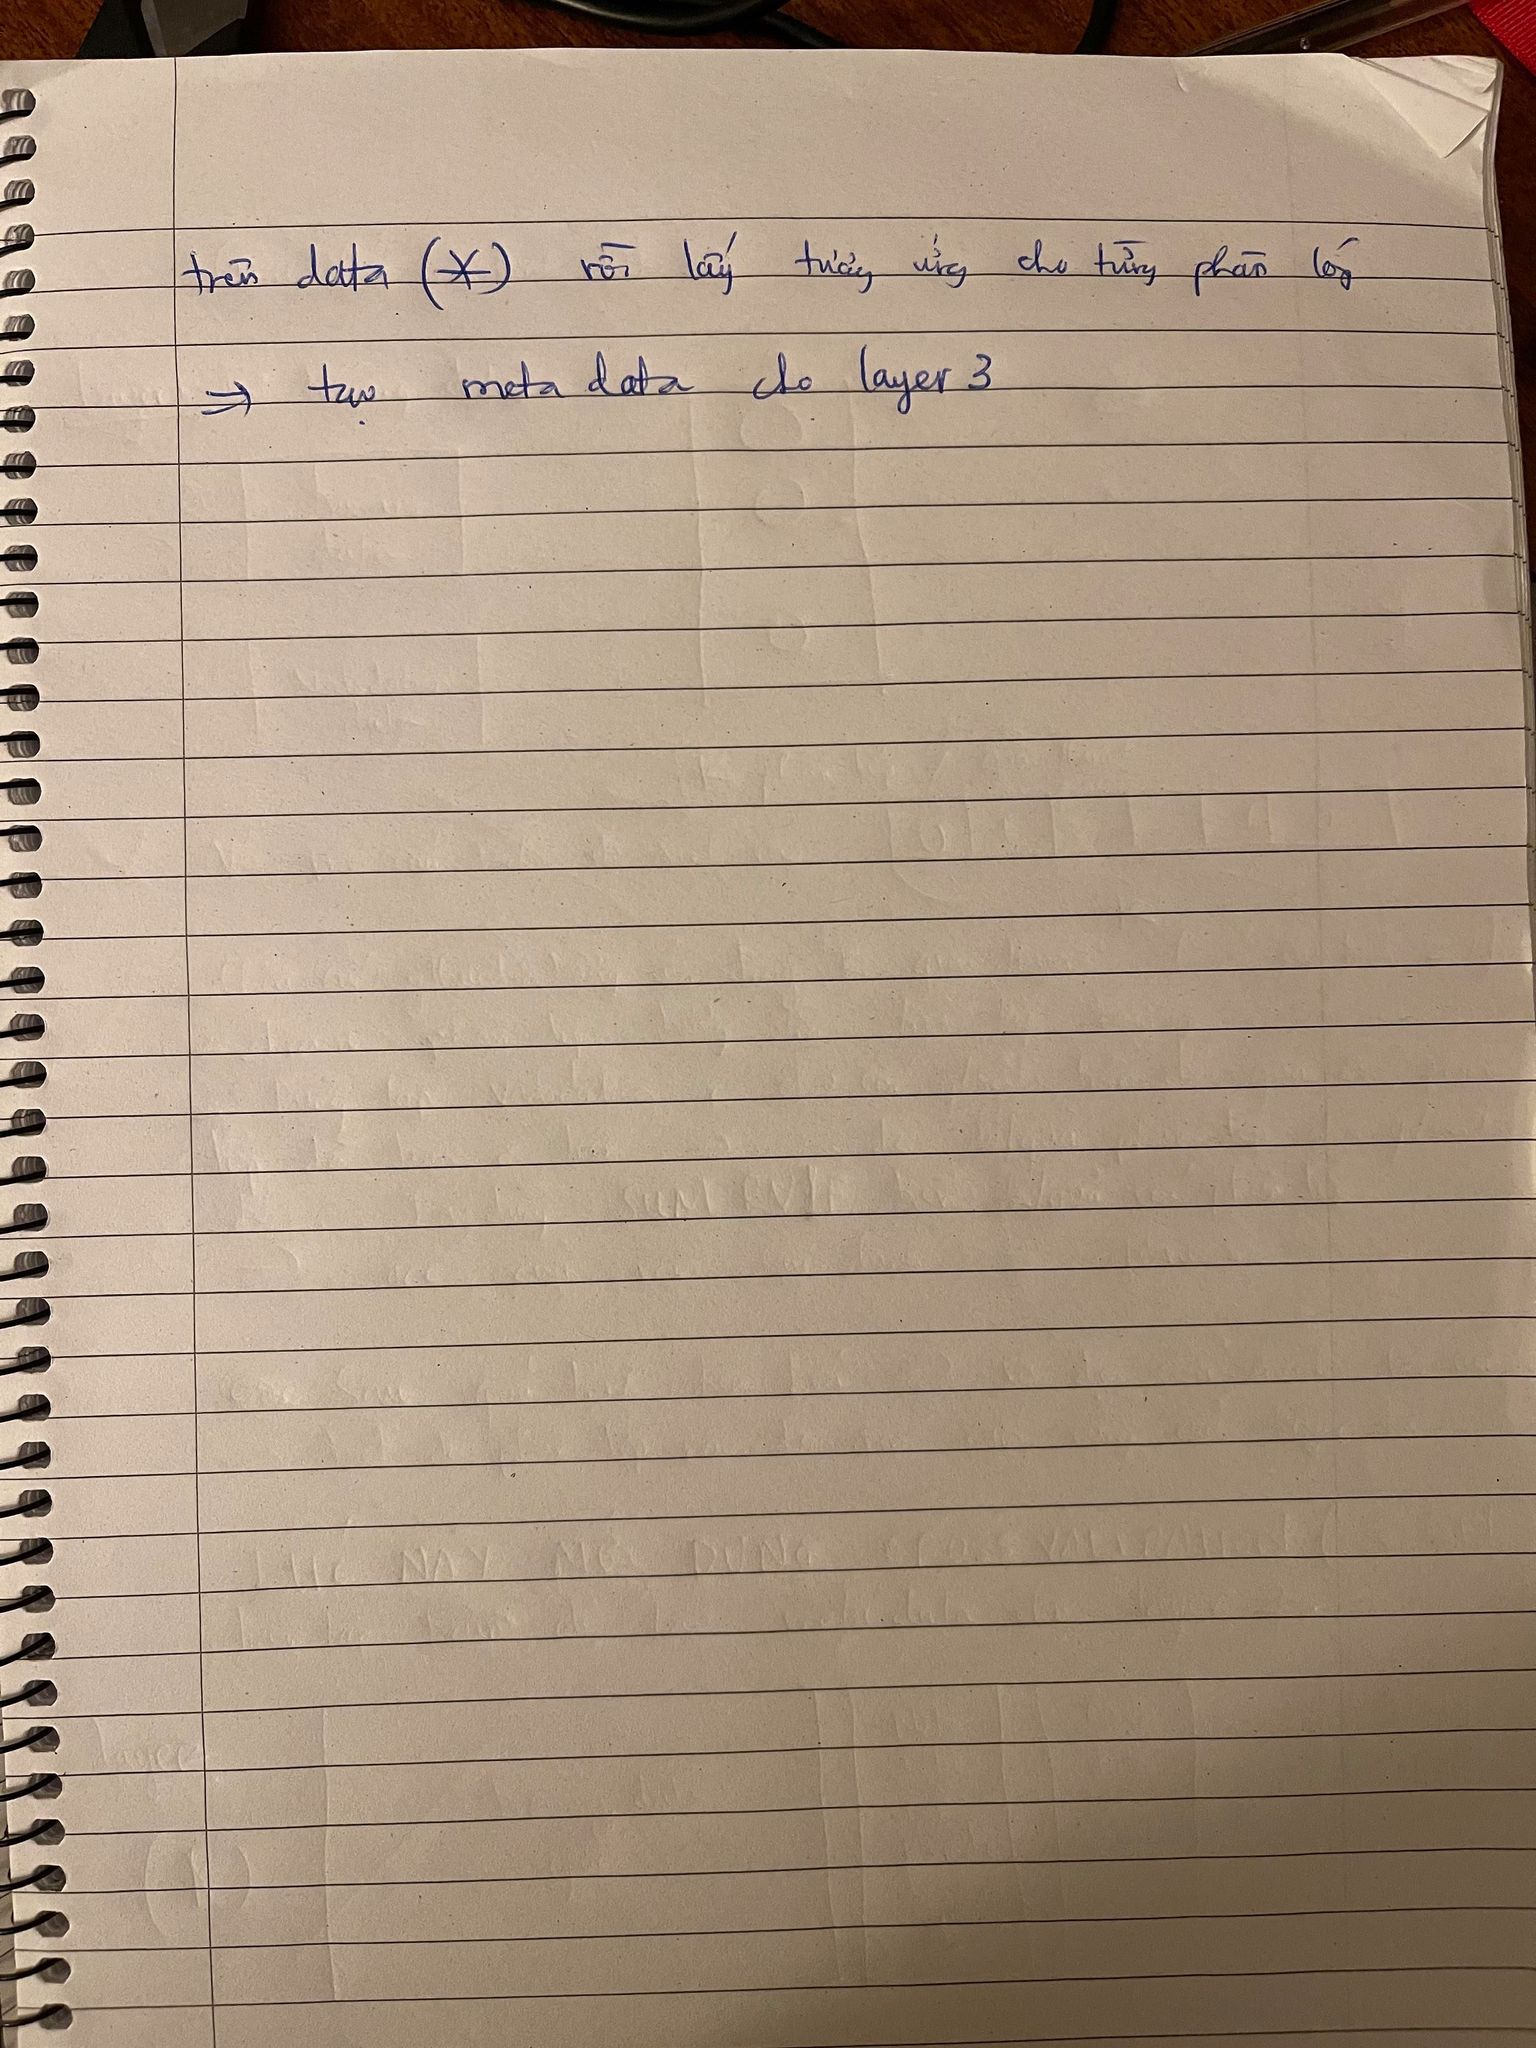 trên data (*) rồi lấy tương ứng cho từng phân lớp
⇒ tạo meta data cho layer 3